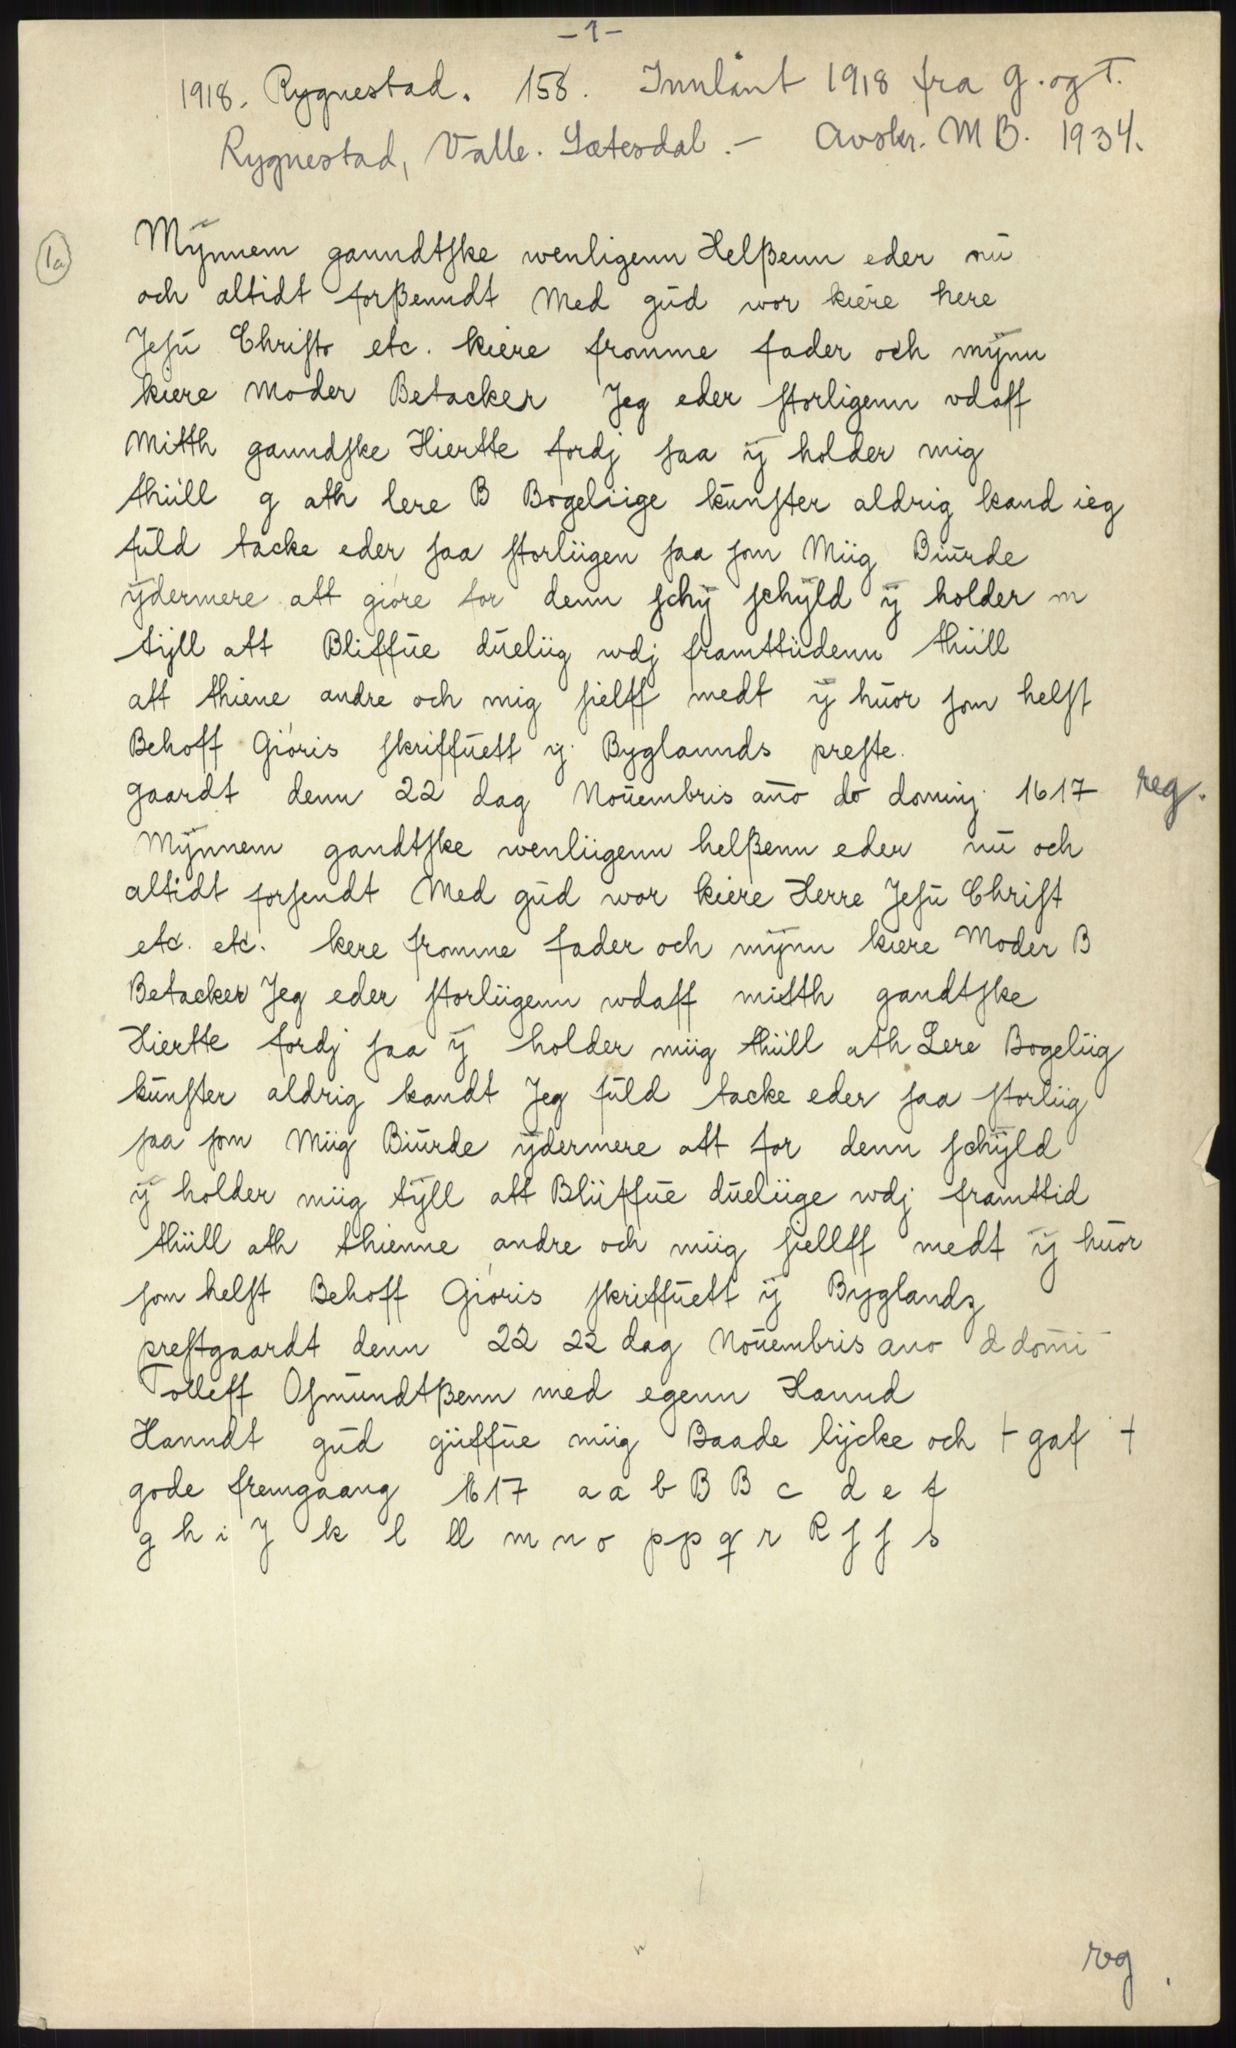 -1-
1918. Rygnestad. 158. Innlånt 1918 fra G. og T.
Rygnestad, Valle. Sætesdal. - Avskr. M B. 1934.
1a
Mÿnnem ganndtſke wenligenn Helßenn eder nū
och altidt forßenndt Med gūd wor kiere here
Jeſū Chriſto etc. kiere fromme fader och mÿnn
kiere Moder Betacker Jeg eder ſtorligenn vdaff
Mitth ganndſke Hiertte fordj ſaa ÿ holder mig
thiill g ath lere B Bogeliige kūnſter aldrig kand ieg
fūld tacke eder ſaa ſtorliigen ſaa ſom Miig Būrde
ÿdermere att gióre for denn ſchÿ ſchÿld ÿ holder m
tijll att Bliffūe dūeliig wdj framttiidenn thiill
att thiene andre och mig ſielff medt ÿ hūor ſom helſt
Behoff Gióris ſkriffūett ÿ Byglannds preſte.
gaardt denn 22 dag Noūembris año do dominj 1617 reg.
Mÿnnem gandtſke wenliigenn helßenn eder nū och
altidt forſendt Med gūd wor kiere Herre Jeſū Chriſt
etc. etc. kere fromme fader och mÿnn kiere Moder B
Betacker Jeg eder ſtorliigenn wdaff mitth gandtſke
Hiertte fordj ſaa ÿ holder miig thiill ath Lere Bogeliig
kūnſter aldrig kandt Jeg fūld tacke eder ſaa ſtorliig
ſaa ſom Miig Biūrde ÿdermere att for denn ſchÿld
ÿ holder miig tÿll att Bliiffūe dūeliige wdj framttid
thiill ath thienne andre och miig ſiellff medt ÿ hūor
ſom helſt Behoff Gióris ſkriffūett ÿ Byglandz
preſtgaardt denn 22 22 dag Noūembris ano d domi
Tolleff Oſmūndtßenn med egenn Hannd
Hanndt gūd giiffūe miig Baade lÿcke och + gaf +
gode fremgaang 1617 a a b B B c d e f
g h i J k l ll m n o p p q r R ſ ſ s
reg